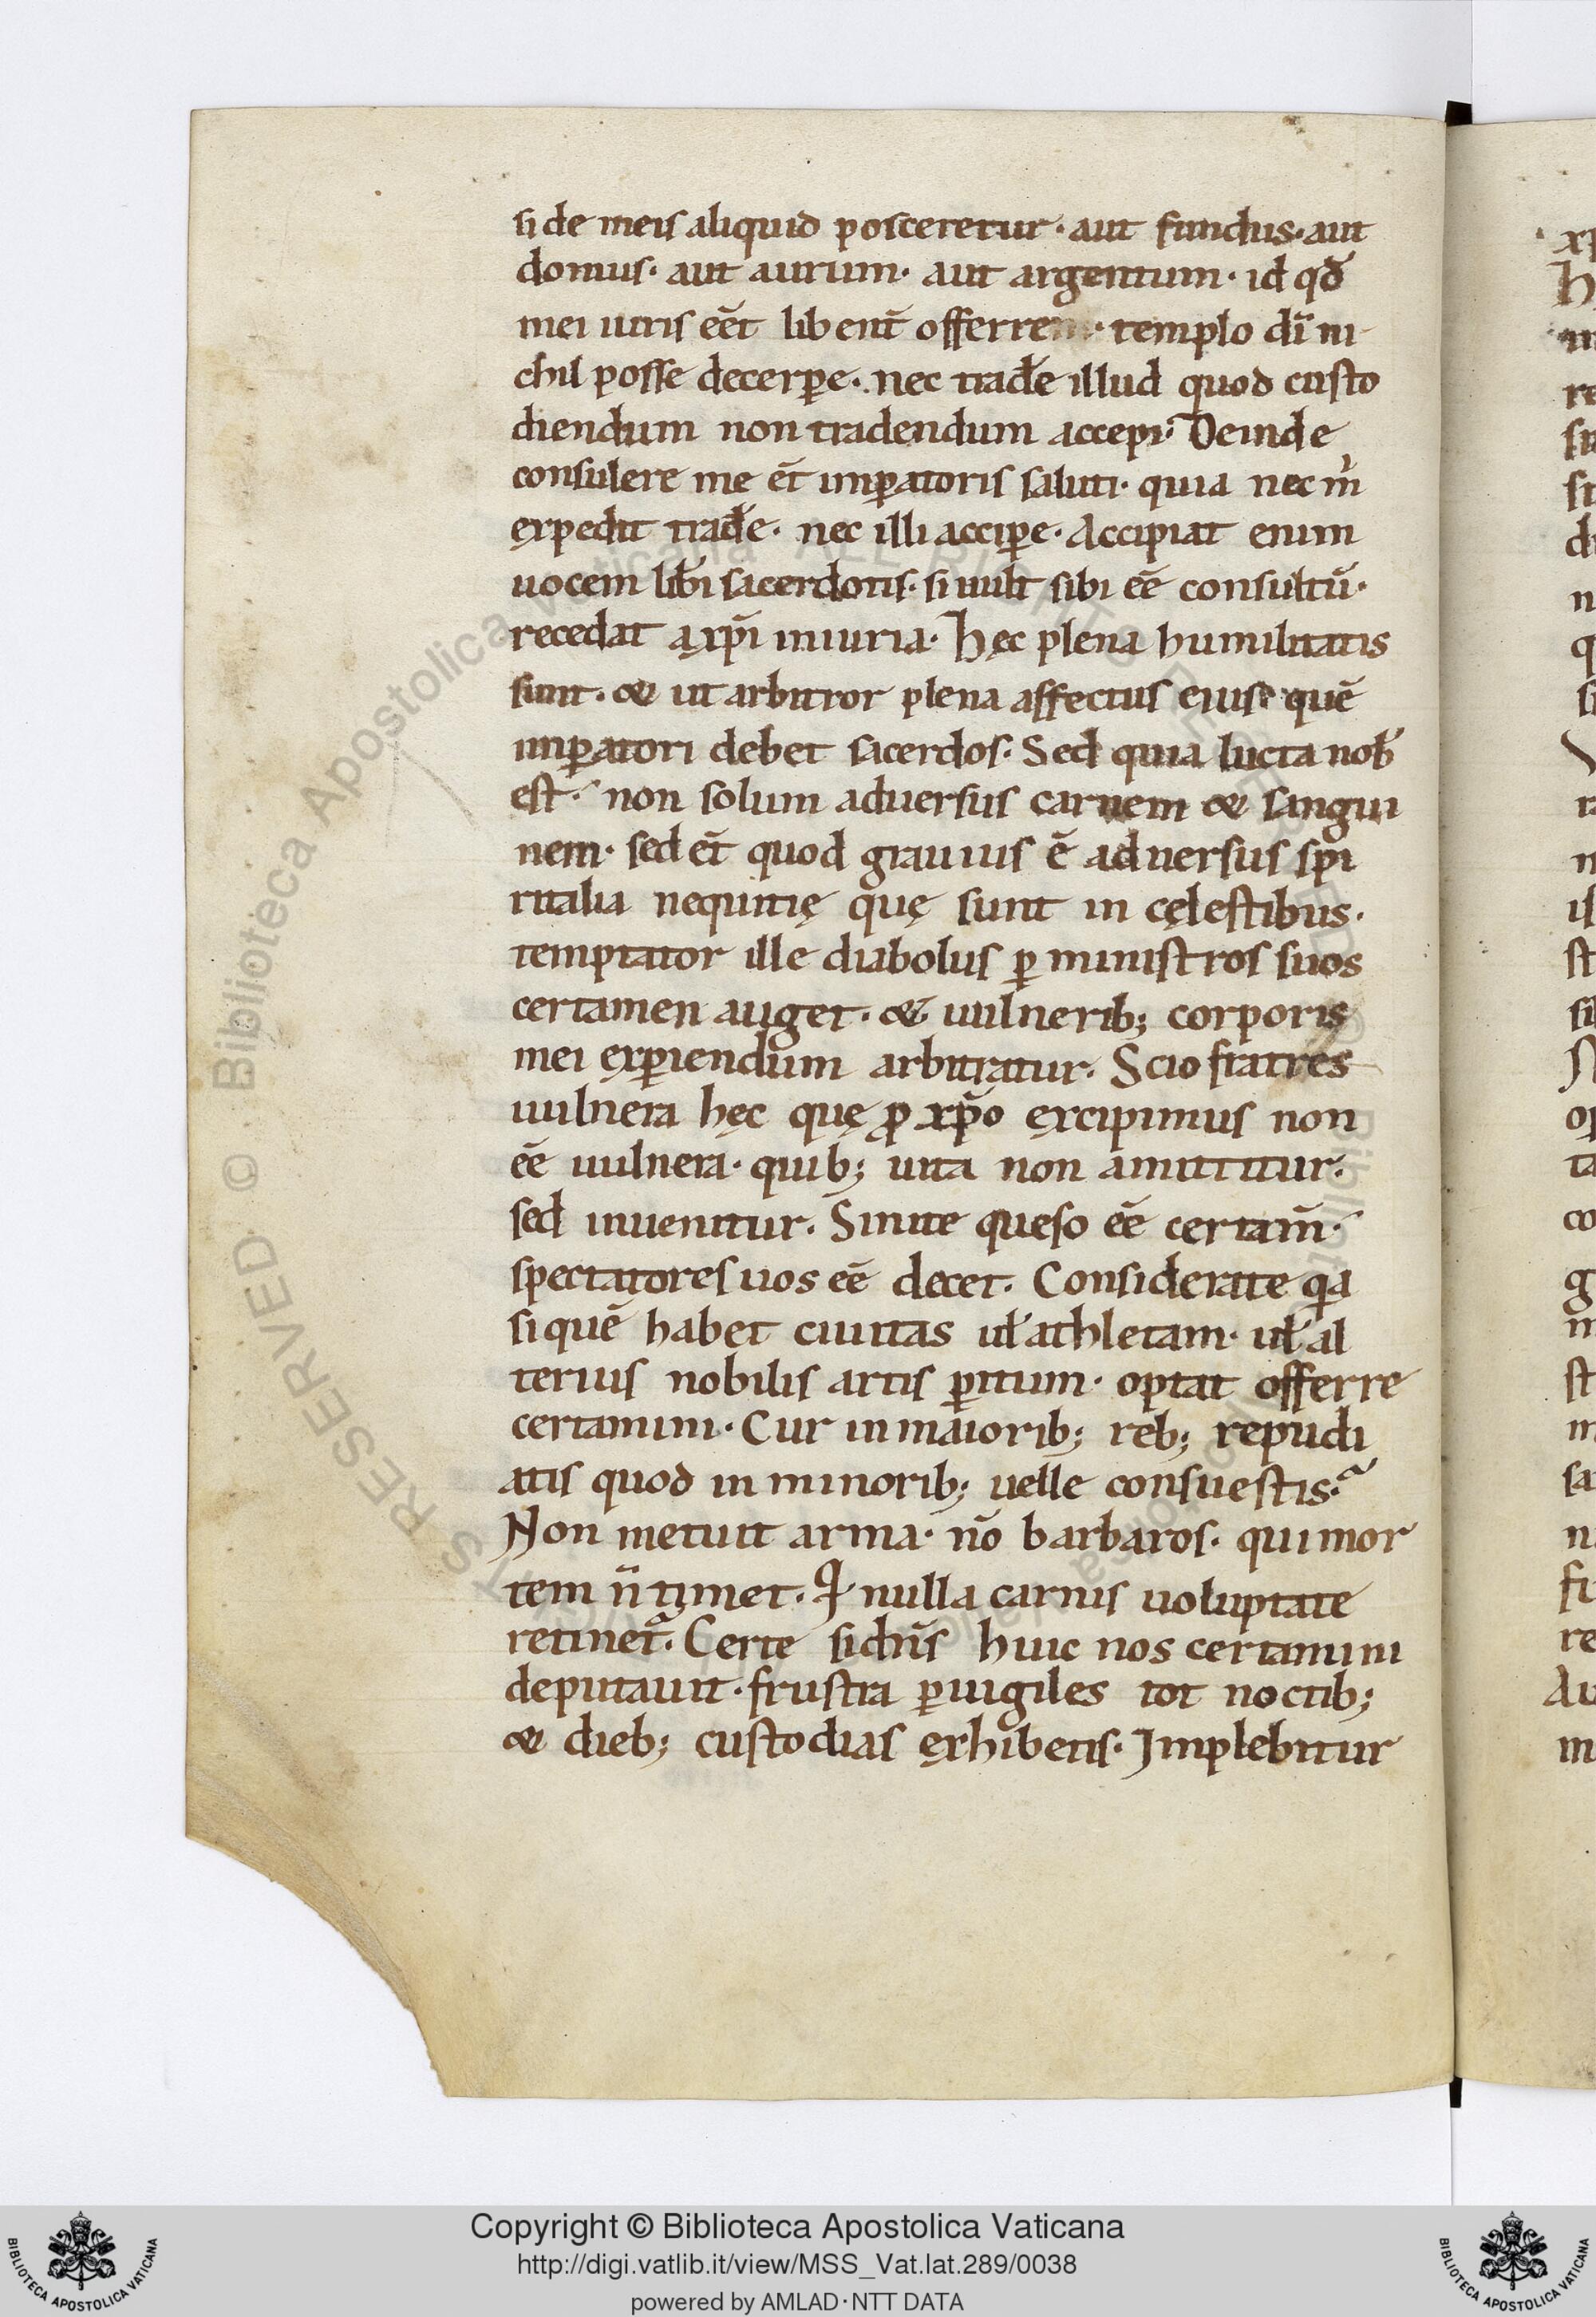 si de meis aliquid posceretur · aut fundus · aut
domus · aut aurum · aut argentum · id qđ
mei iuris eēt libent̄ offerrem · templo dī ni
chil posse decerꝑe · nec trad̄e illud quod custo
diendum non tradendum accepi · Deinde
consulere me et̄ imꝑatoris saluti · quia nec m̄
expedit trad̄e · nec illi acciꝑe · Accipiat enim
uocem lib̄i sacerdotis · si uult sibi eē consultū ·
recedat a xp̄i iniuria · hęc plena humilitatis
sunt · & ut arbitror plena affectus eius quē
imꝑatori debet sacerdos · Sed quia lucta nob̄
est · non solum aduersus carnem & sangui
nem · sed et̄ quod grauius ē aduersus spi
ritalia nequitię quę sunt in cęlestibus ·
temptator ille diabolus ꝑ ministros suos
certamen auget · & uulnerib; corporis
mei exꝑiendum arbitratur · Scio fratres
uulnera hęc quę ꝓ xp̄o excipimus non
eē uulnera · quib; uita non amittitur ·
sed inuenitur · Sinite queso eē certam̄ ·
spectatores uos eē decet · Considerate qa
si quē habet ciuitas ul̄ athletam · ul̄ al
terius nobilis artis ꝑitum · optat offerre
certamini · Cur in maiorib; reb; repudi
atis quod in minorib; uelle consuestis ·
Non metuit arma · nō barbaros · qui mor
tem n̄ timet · ꝗ nulla carnis uoluptate
retinet̄ · Certe si dn̄s huic nos certamini
deputauit · frustra ꝑuigiles tot noctib;
& dieb; custodias exhibetis · Implebitur
Copyright © Biblioteca Apostolica Vaticana
http://digi.vatlib.it/view/MSS_Vat.lat.289/0038
powered by AMLAD·NTT DATA